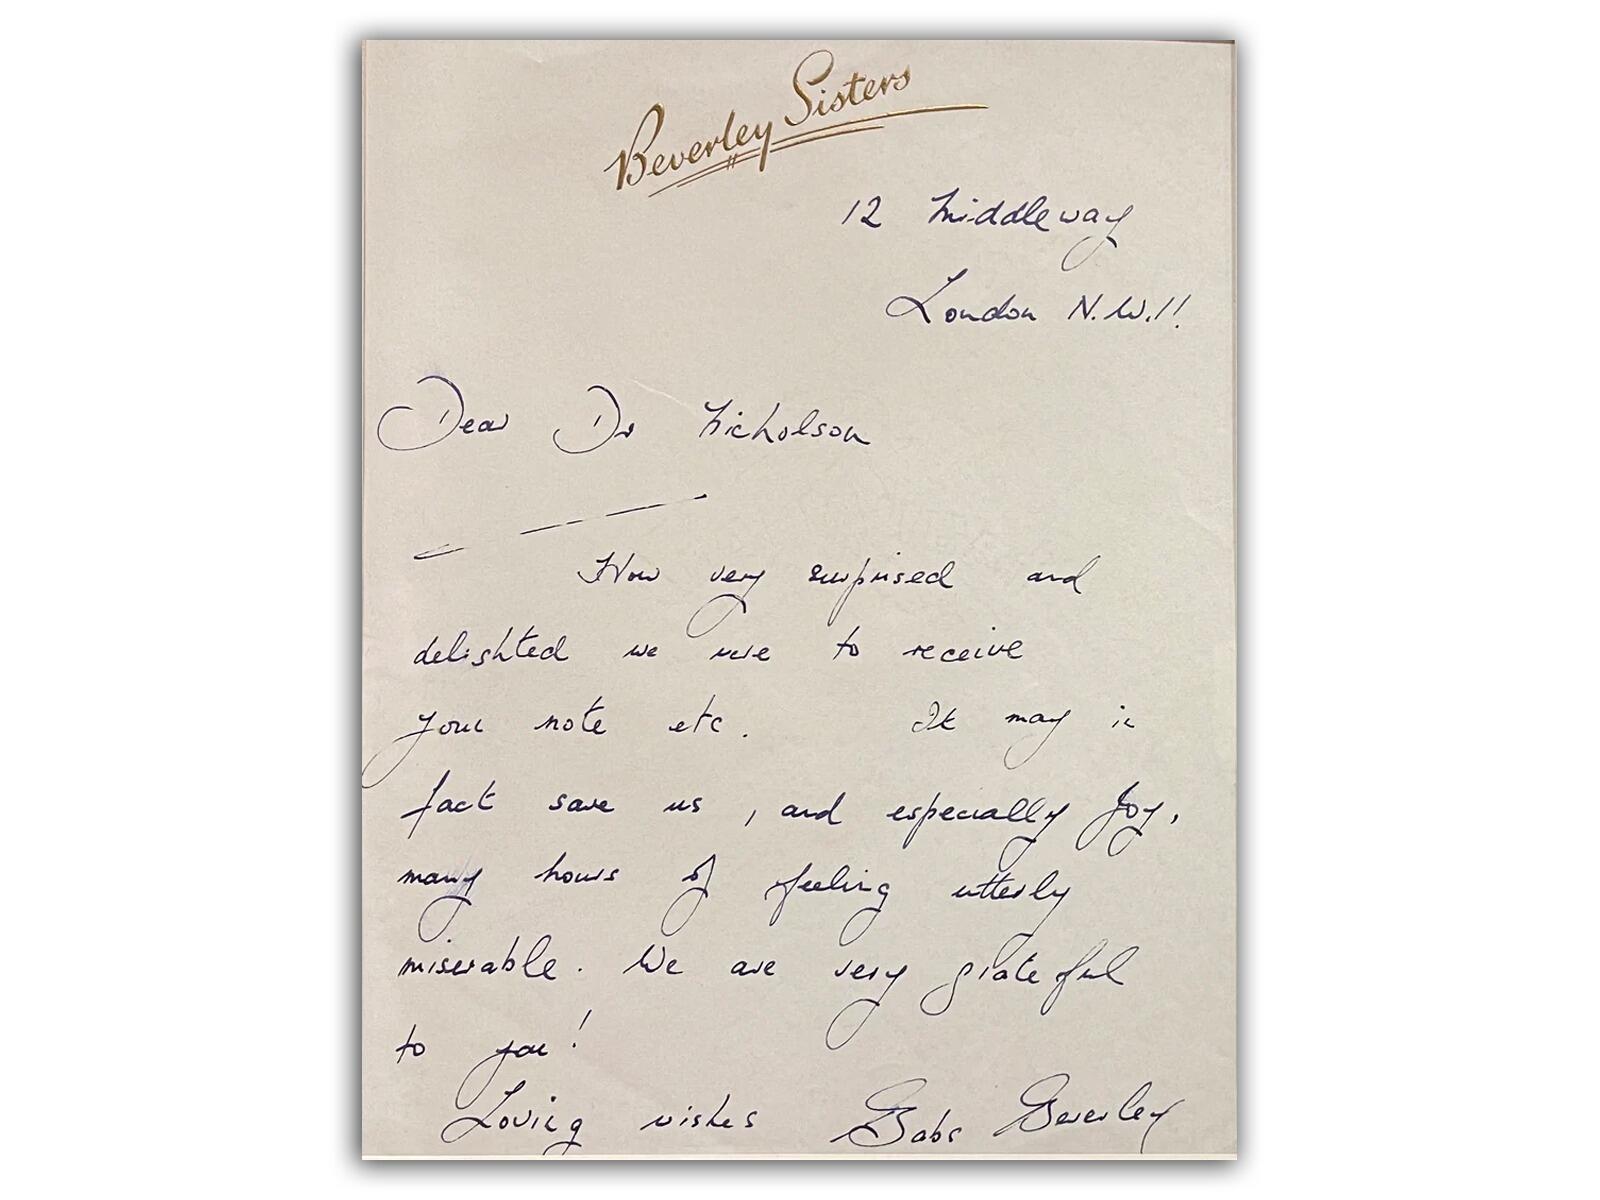 Beverley Sisters
12 Middleway
London N.W.11
Dear Dr Nicholson
How very surprised and
delighted we were to receive
your note etc. It may in
fact save us, and especially Joy,
many hours of feeling utterly
miserable. We are very grateful
to you!
Loving wishes Babs Beverley